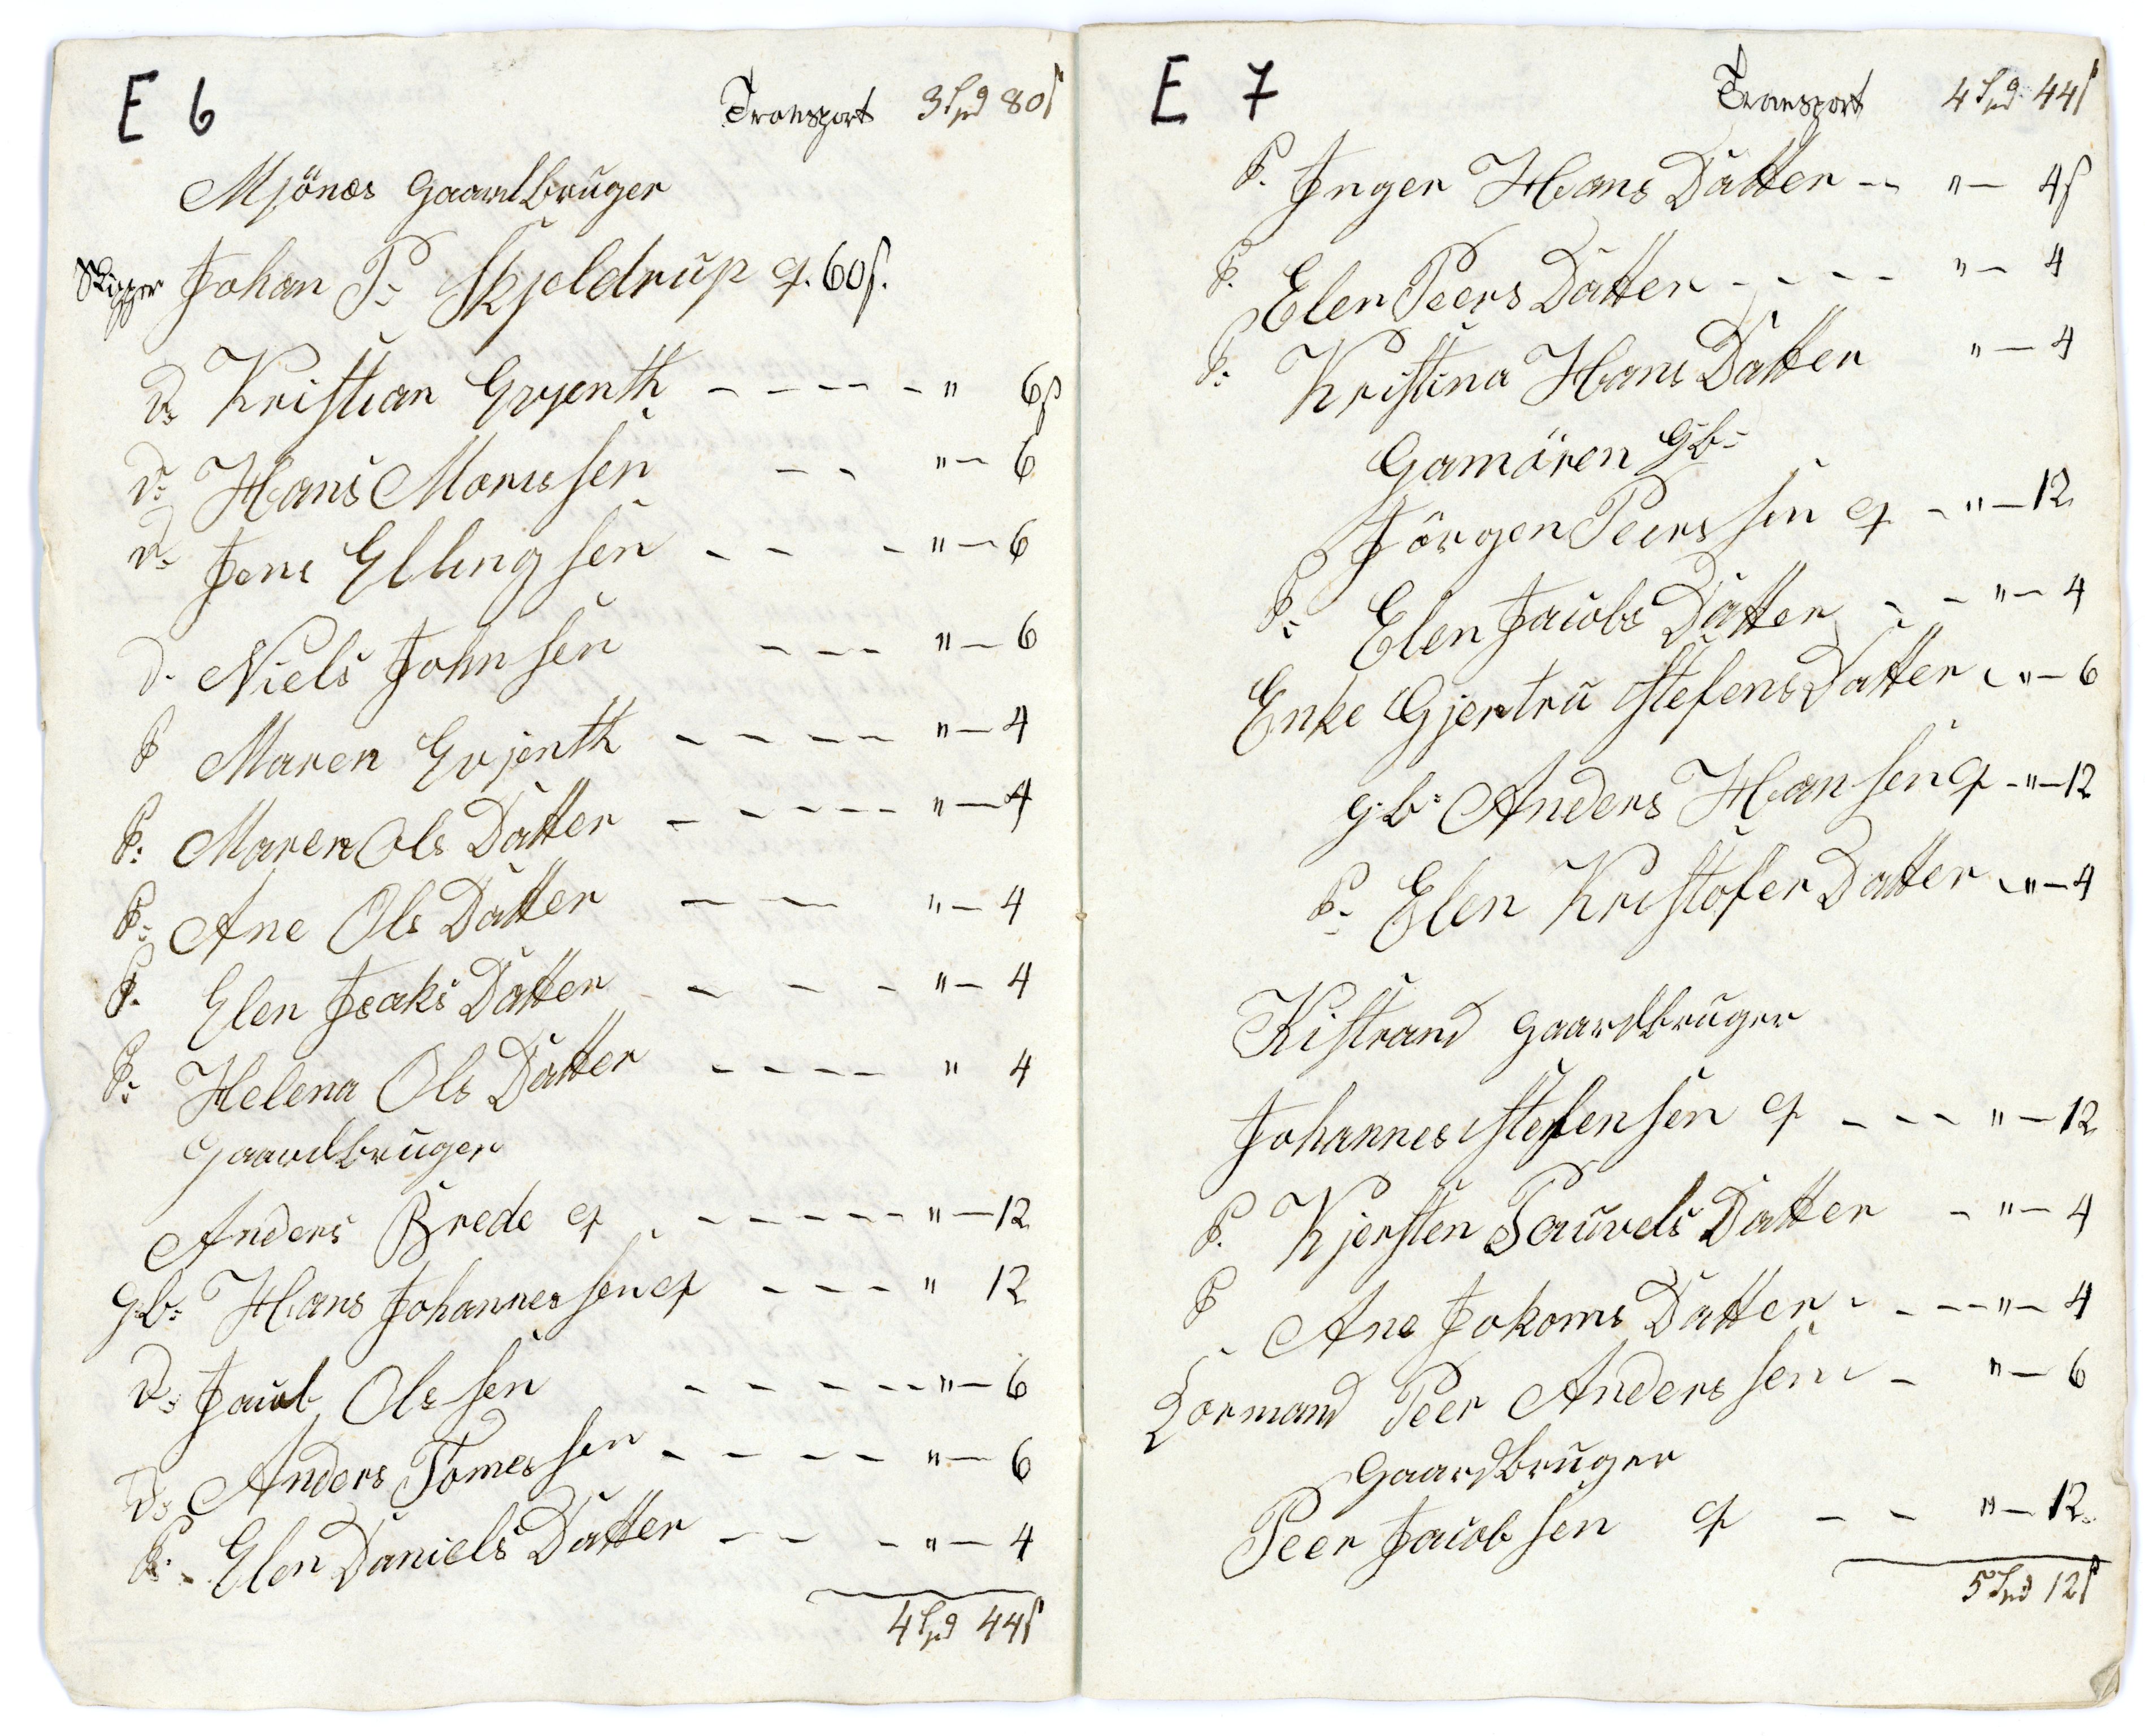 E 6
Transport 3 Spd 80 s
Mjönæs Gaardbruger
Skipper Johan P: Skjeldrup q. 60 s.
D: Kristian Evjenth - - - - - " 6 s
D: Hans Morussen - - " - 6
D: Jens Ellingsen - - - " - 6
D. Niels Johnsen - - - " - 6
P Maren Evjenth - - - - " - 4
P: Maren Ols Datter - - - - - " - 4
P: Ane Ols Datter - - " - 4
P. Elen Isaks Datter - - - " - 4
P: Helena Ols Datter - - - - " 4
Gaardbruger
Anders Brede q - - - - - " - 12
Gb: Hans Johannessen q - - - " 12
D: Jacob Olssen - - - - - " - 6
D: Anders Tomessen - - - - " - 6
P: Elen Daniels Datter - - - " - 4
4 Spd 44 s
E 7
Transport 4 Spd 44 s
P. Inger Hans Datter - - " - 4 s
P. Elen Peers Datter - - - - " - 4
P: Kristina Hans Datter " - 4
Gamören Gb:
Jörgen Peerssen q - " - 12
P: Elen Jacobs Datter - - " - 4
Enke Gjertru Stefens Datter - " - 6
gb: Anders Hansen q - " - 12
P: Elen Kristofer Datter - " - 4
Kistrand Gaardbruger
Johannes Stefensen q - - - " - 12
P. Kjersten Pauvels Datter - " - 4
P Ane Jokoms Datter - - - - " - 4
Lormand Peer Anderssen - - " - 6
Gaardbruger
Peer Jacobsen q - - " - 12
5 Spd 12 s